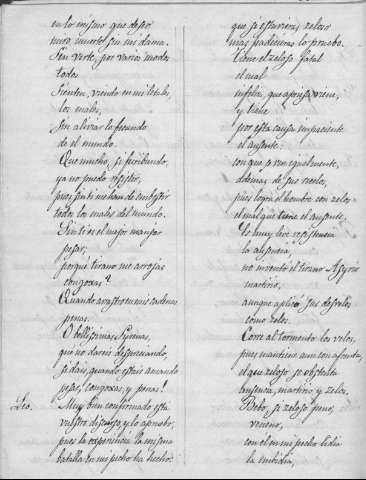 en lo mismo que deseo
miro muerte sin mi dama.
Sin verte, por varios modos
todos
sienten, viendo en mi letal,
los males,
sin aliviar lo fecundo
de el mundo.
Que mucho, si furibundo,
ya no puedo resistir,
pues sin ti me han de embestir
todos los males del mundo.
Sin ti es el mayor
pesar,
porque tirano me arrojas
congoxas?
Quando arrastro mis cadenas
penas.
O bellisimas Syrenas,
que no dareis
si dais, quando estais amando
pesar, congoxas, y penas!
Leo. Muy bien confirmado está
vuestro discurso, y lo apruebo,
pues la experiencia la misma
batalla en mi pecho ha hecho.
que si estuviera zeloso
mas padeciera lo pruebo.
Tiene el zeloso fatal
el mal
infeliz, que aprisa viene,
y tiene
por esta causa impaciente
el ausente.
con que a ver igualmente,
de sus zelos,
pues logra el hombre con zelos
el mal que tiene el ausente.
Es muy leve resistencia
la ausencia,
no inventó el tirano Asyrio
martirio,
aunque aplicó sus desvelos
como zelos.
Corre al tormento los velos,
pues mantiene aun con afrenta,
el que zeloso se
ausencia, martirio y zelos.
Bebo, si zeloso peno,
veneno,
con el en mi pecho lidia
la embidia,